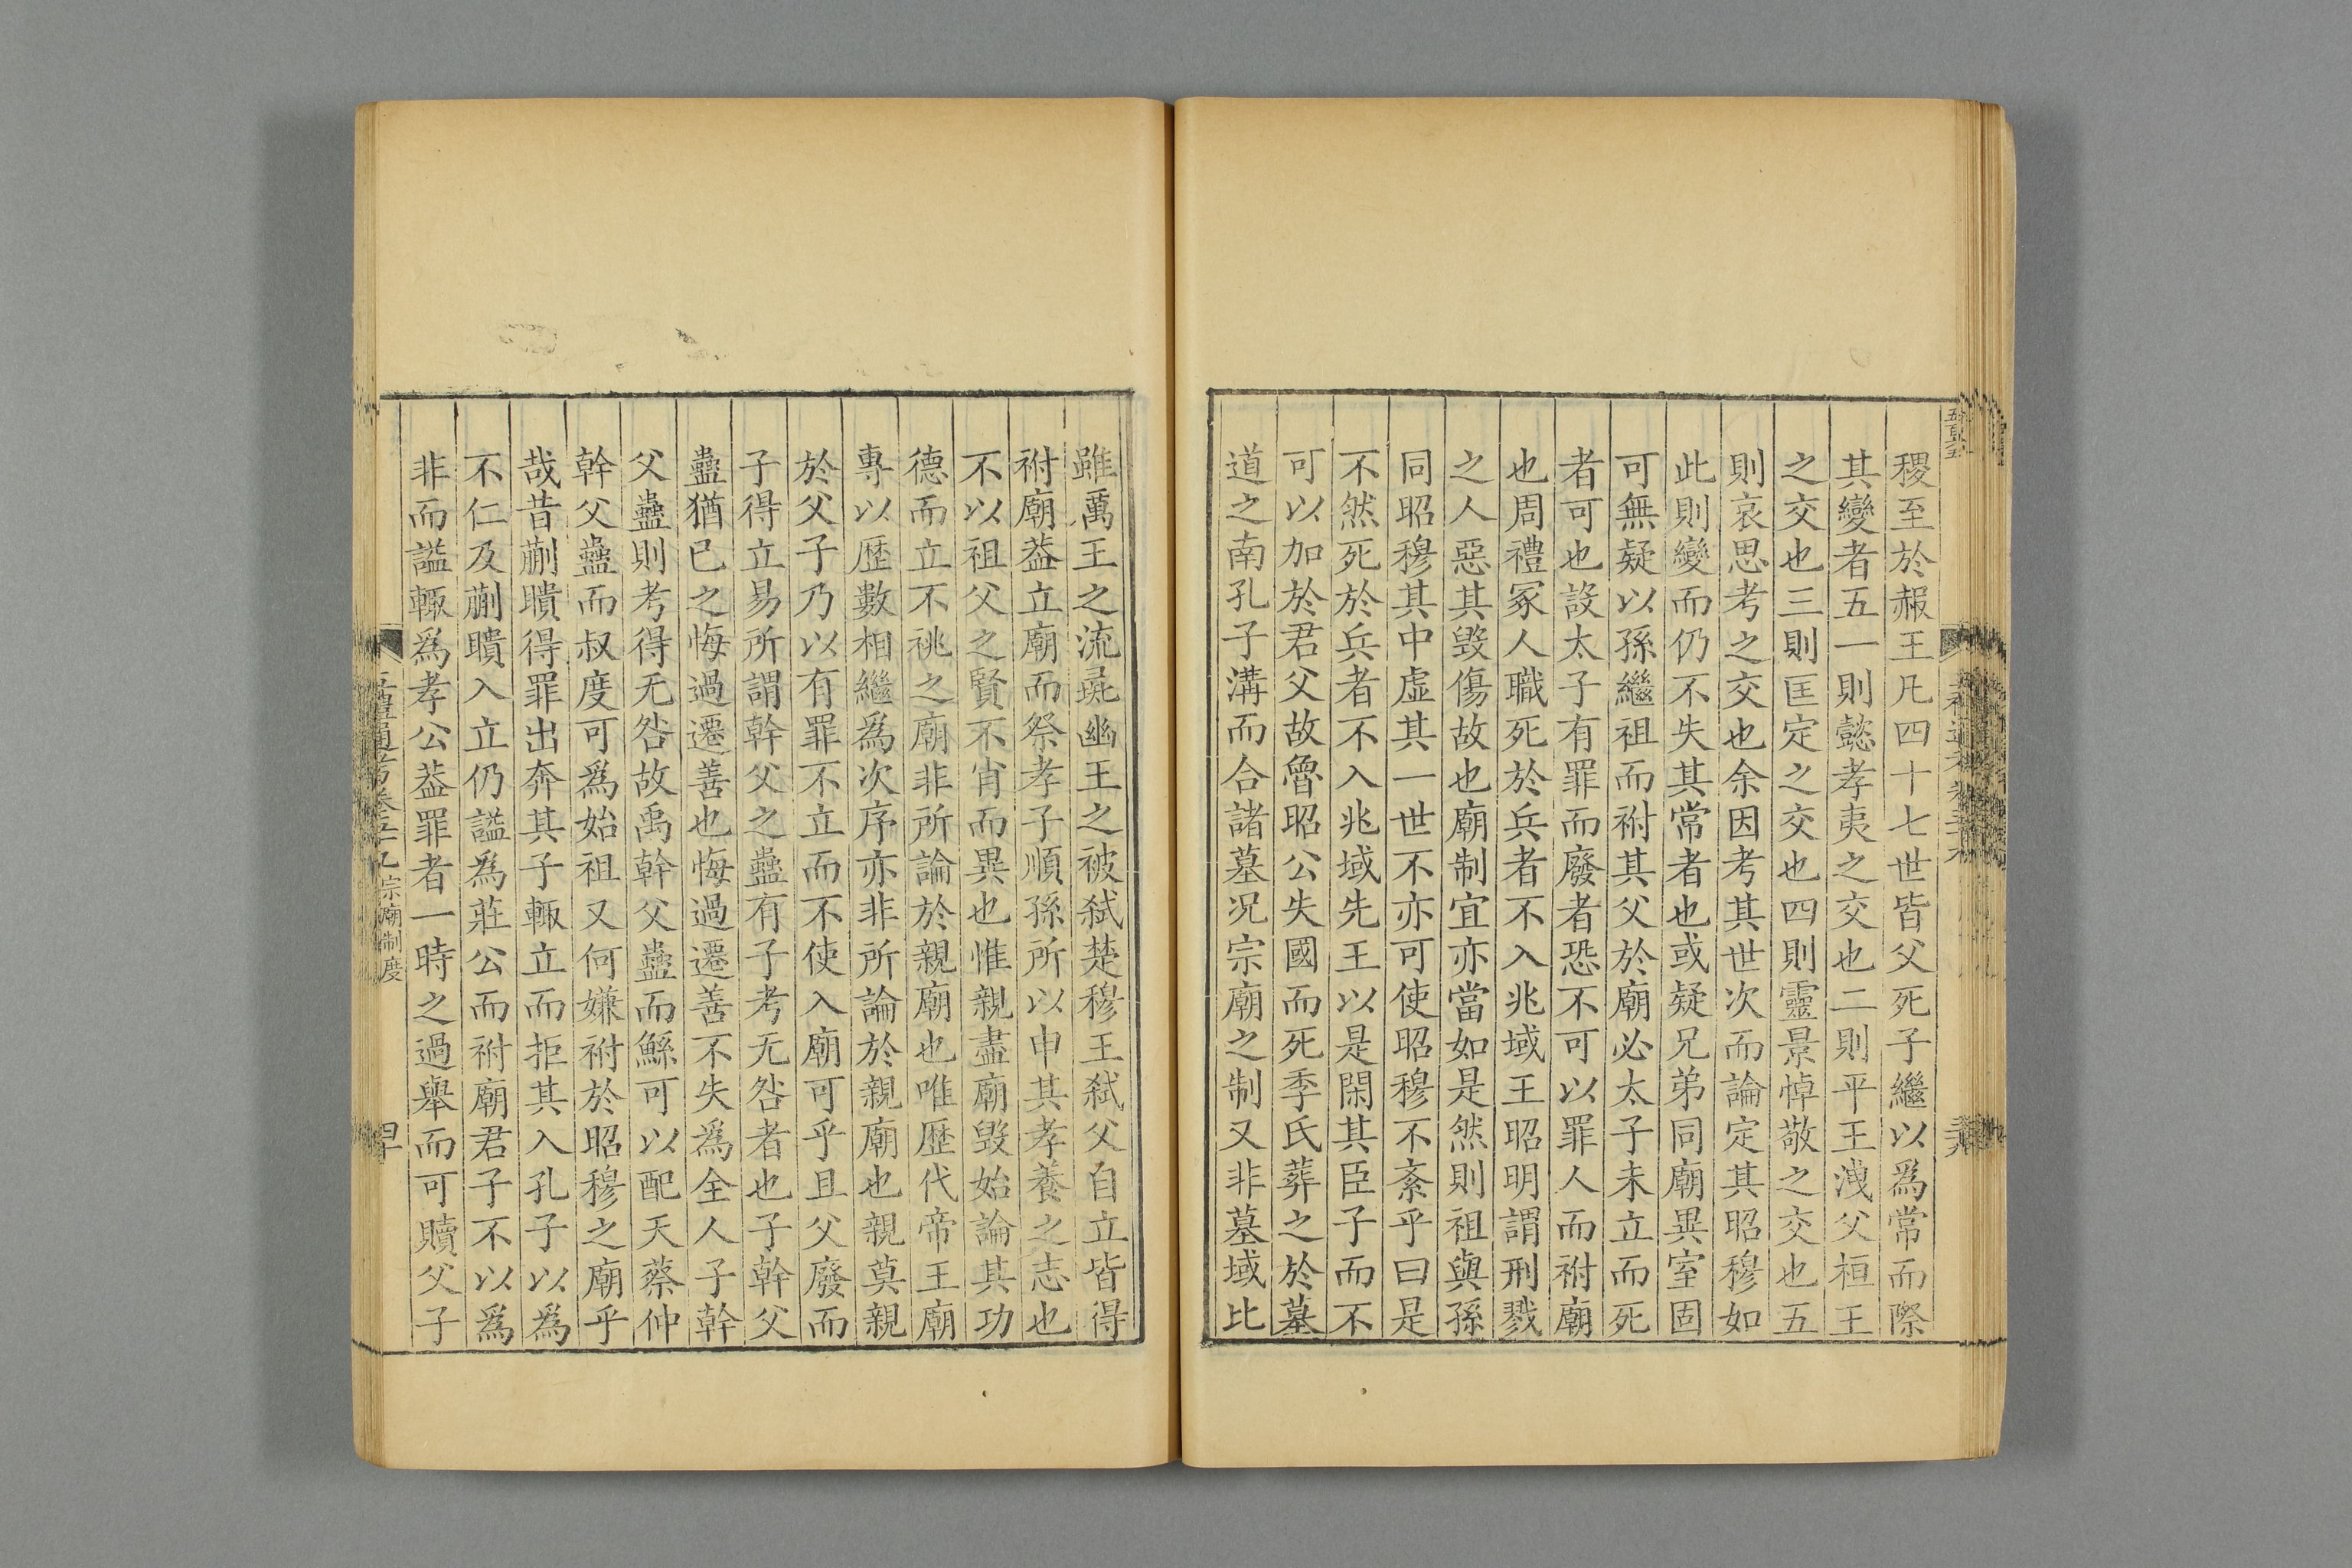 稷至於赧王凡四十七世皆父死子繼以爲常而際
其變者五一則懿孝夷之交也二則平王洩父桓王
之交也三則匡定之交也四則靈景悼敬之交也五
則哀思考之交也余因考其世次而論定其昭穆如
此則變而仍不失其常者也或疑兄弟同廟異室固
可無疑以孫繼祖而祔其父於廟必太子未立而死
者可也設太子有罪而廢者恐不可以罪人而祔廟
也周禮冢人職死於兵者不入兆域王昭明謂刑戮
之人惡其毀傷故也廟制宜亦當如是然則祖與孫
同昭穆其中虛其一世不亦可使昭穆不紊乎曰是
不然死於兵者不入兆域先王以是閑其臣子而不
可以加於君父故魯昭公失國而死季氏葬之於墓
道之南孔子溝而合諸墓况宗廟之制又非墓域比
雖厲王之流彘幽王之被弑楚穆王弑父自立皆得
祔廟葢立廟而祭孝子順孫所以申其孝養之志也
不以祖父之賢不肖而異也惟親盡廟毀始論其功
德而立不祧之廟非所論於親廟也唯歷代帝王廟
專以歷數相繼爲次序亦非所論於親廟也親莫親
於父子乃以有罪不立而不使入廟可乎且父廢而
子得立易所謂幹父之蠱有子考无咎者也子幹父
蠱猶已之悔過遷善也悔過遷善不失爲全人子幹
父蠱則考得无咎故禹幹父蠱而鯀可以配天蔡仲
幹父蠱而叔度可爲始祖又何嫌祔於昭穆之廟乎
哉昔蒯聵得罪出奔其子輒立而拒其入孔子以爲
不仁及蒯聵入立仍諡爲莊公而祔廟君子不以爲
非而諡輒爲孝公葢罪者一時之過舉而可贖父子
五禮通考卷五十九 宗廟制度